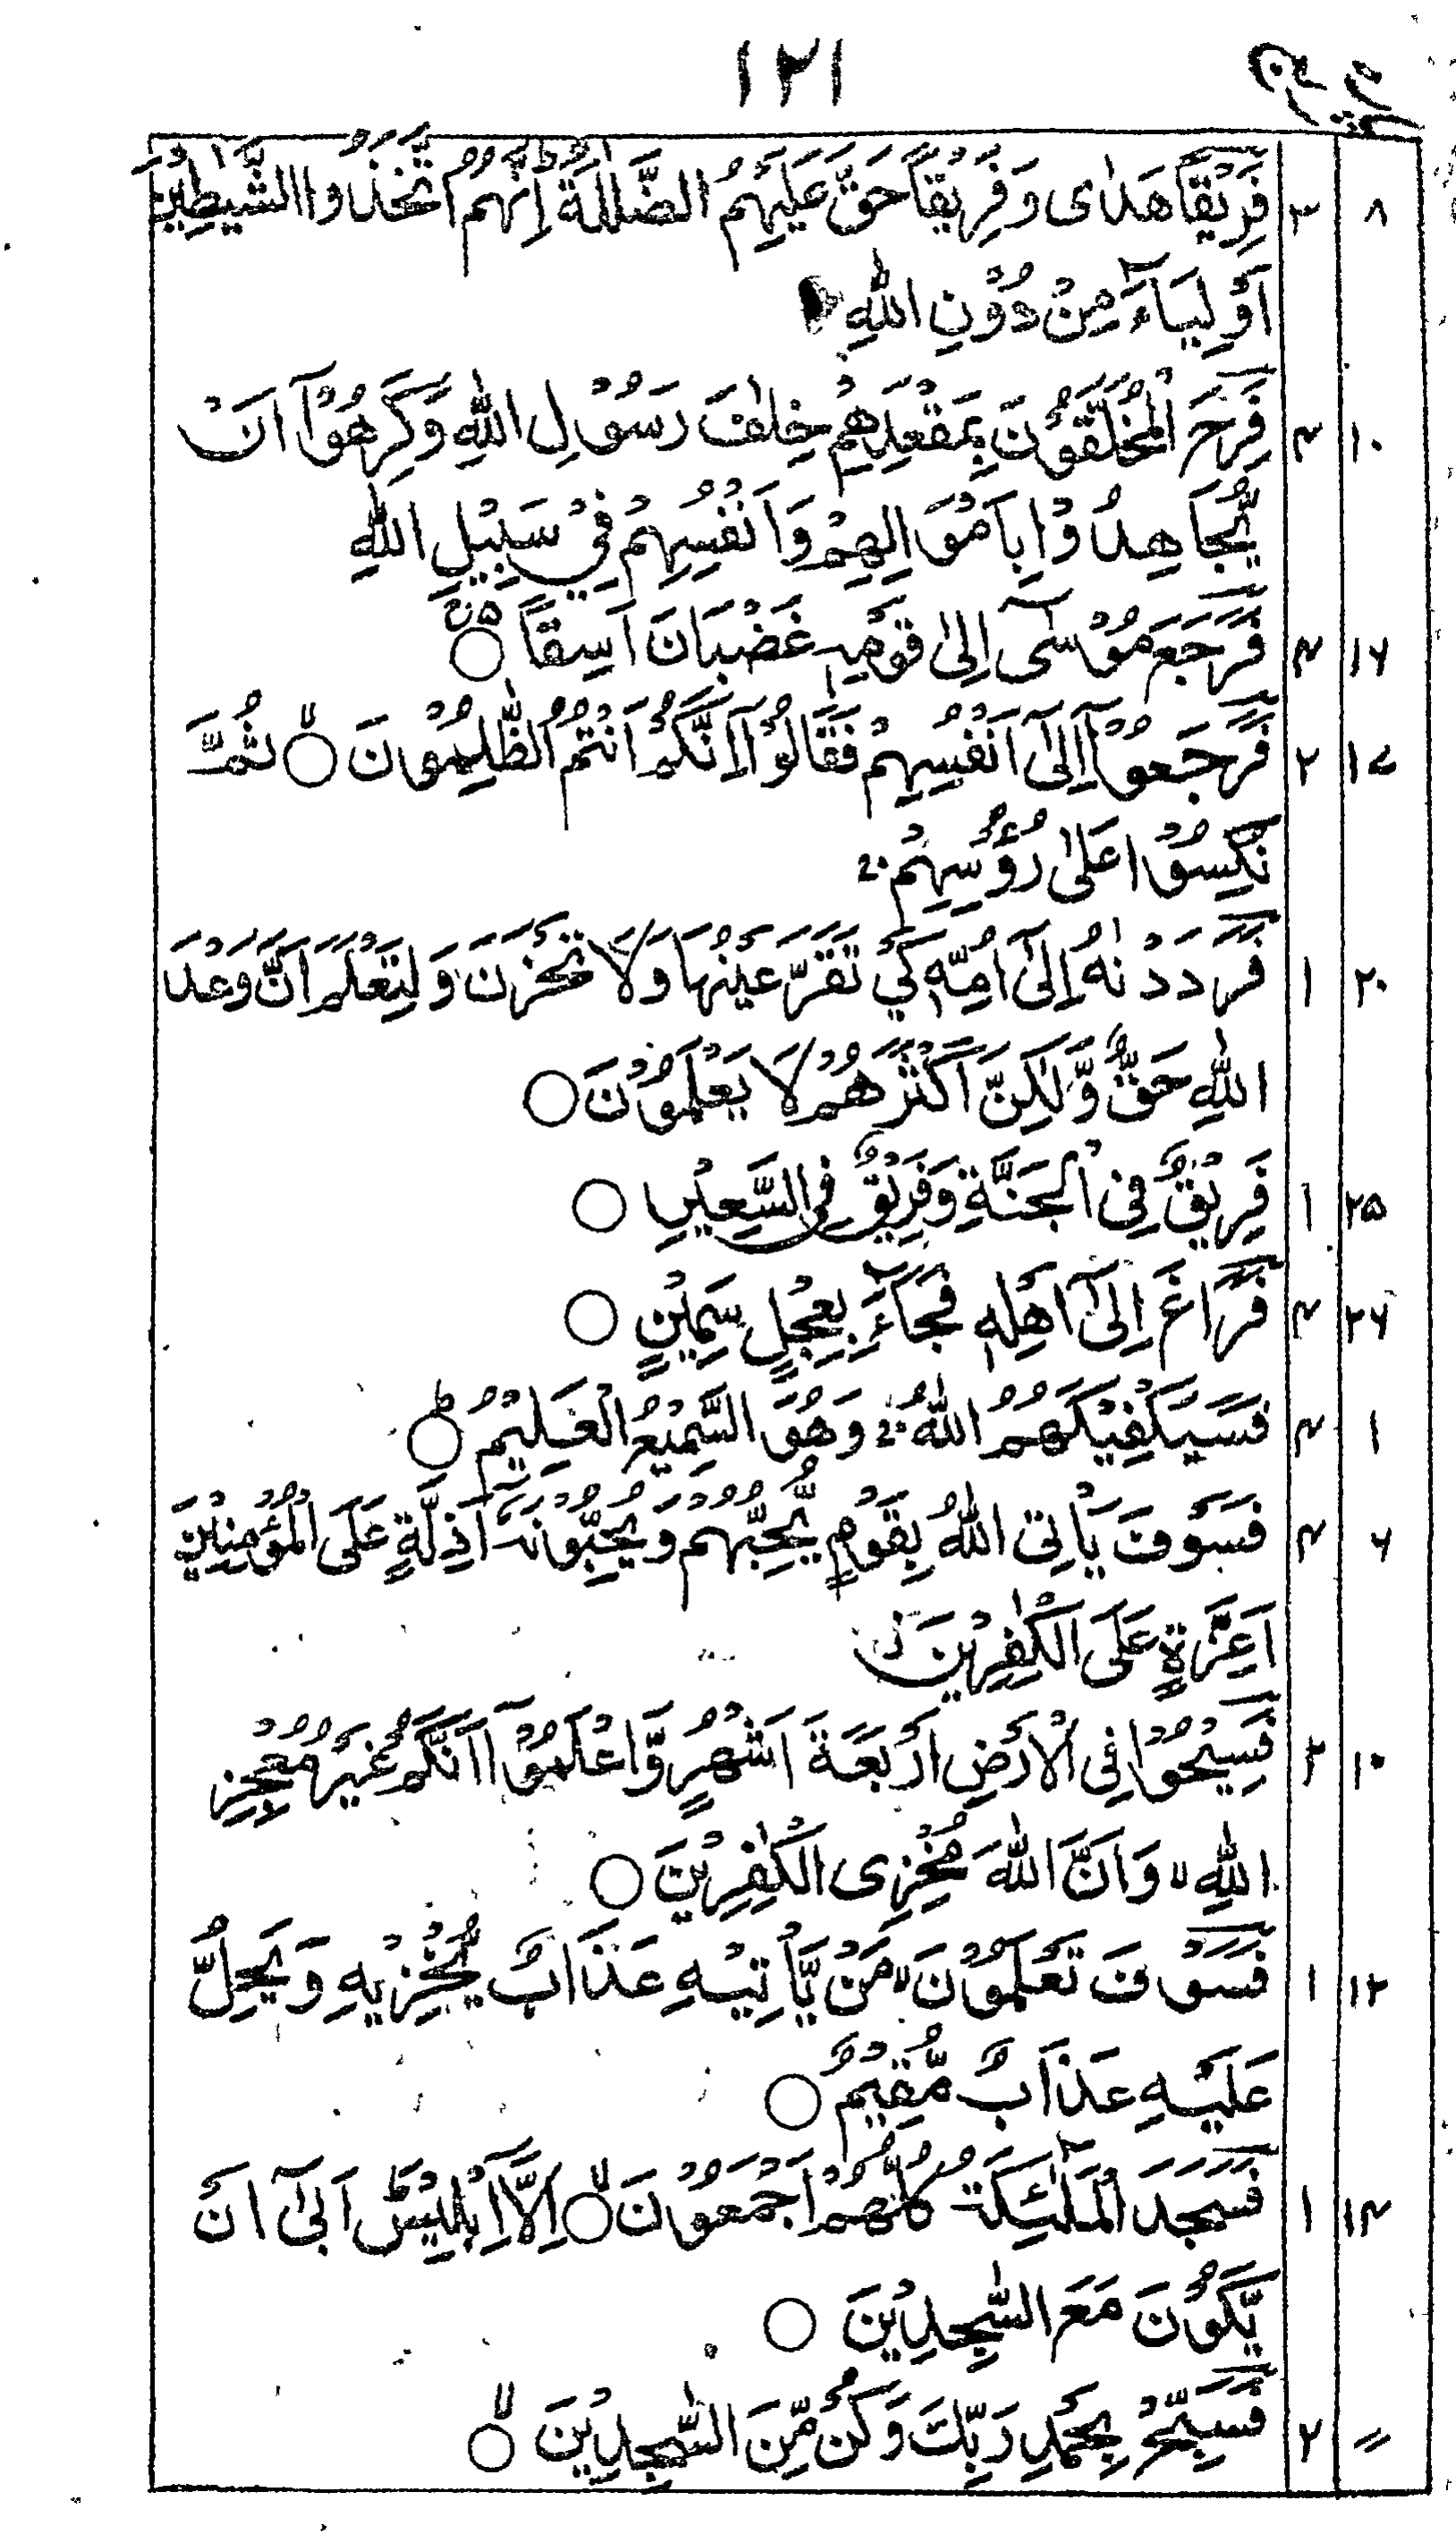 ١٢١
٨ ٣ فَرِيْقًا هَدٰى وَ فَرِيْقًا حَقَّ عَلَيْهِمُ الضَّلٰلَةُ ؕ اِنَّهُمُ اتَّخَذُوا الشَّيٰطِيْنَ
اَوْلِيَآءَ مِنْ دُوْنِ اللّٰهِ
١٠ ٣ فَرِحَ الْمُخَلَّفُوْنَ بِمَقْعَدِهِمْ خِلٰفَ رَسُوْلِ اللّٰهِ وَ كَرِهُوْٓا اَنْ
يُّجَاهِدُوْا بِاَمْوَالِهِمْ وَ اَنْفُسِهِمْ فِيْ سَبِيْلِ اللّٰهِ
١٦ ٣ فَرَجَعَ مُوْسٰٓى اِلٰى قَوْمِهٖ غَضْبَانَ اَسِفًا ○
١٧ ٢ فَرَجَعُوْٓا اِلٰٓى اَنْفُسِهِمْ فَقَالُوْٓا اِنَّكُمْ اَنْتُمُ الظّٰلِمُوْنَ ○ۙ ثُمَّ
نُكِسُوْا عَلٰى رُءُوْسِهِمْ ۚ
٢٠ ١ فَرَدَدْنٰهُ اِلٰٓى اُمِّهٖ كَيْ تَقَرَّ عَيْنُهَا وَ لَا تَحْزَنَ وَ لِتَعْلَمَ اَنَّ وَعْدَ
اللّٰهِ حَقٌّ وَّ لٰكِنَّ اَكْثَرَهُمْ لَا يَعْلَمُوْنَ ○
٢٥ ١ فَرِيْقٌ فِى الْجَنَّةِ وَ فَرِيْقٌ فِى السَّعِيْرِ ○
٢٦ ٣ فَرَاغَ اِلٰٓى اَهْلِهٖ فَجَآءَ بِعِجْلٍ سَمِيْنٍ ○
١ ٣ فَسَيَكْفِيْكَهُمُ اللّٰهُ ۚ وَ هُوَ السَّمِيْعُ الْعَلِيْمُ ○ؕ
٦ ٣ فَسَوْفَ يَاْتِى اللّٰهُ بِقَوْمٍ يُّحِبُّهُمْ وَ يُحِبُّوْنَهٗٓ اَذِلَّةٍ عَلَى الْمُؤْمِنِيْنَ
اَعِزَّةٍ عَلَى الْكٰفِرِيْنَ ز
١٠ ٢ فَسِيْحُوْا فِى الْاَرْضِ اَرْبَعَةَ اَشْهُرٍ وَّ اعْلَمُوْٓا اَنَّكُمْ غَيْرُ مُعْجِزِى
اللّٰهِ ۙ وَ اَنَّ اللّٰهَ مُخْزِى الْكٰفِرِيْنَ ○
١٢ ١ فَسَوْفَ تَعْلَمُوْنَ ۙ مَنْ يَّاْتِيْهِ عَذَابٌ يُّخْزِيْهِ وَ يَحِلُّ
عَلَيْهِ عَذَابٌ مُّقِيْمٌ ○
١٣ ١ فَسَجَدَ الْمَلٰٓئِكَةُ كُلُّهُمْ اَجْمَعُوْنَ ○ۙ اِلَّآ اِبْلِيْسَ ؕ اَبٰٓى اَنْ
يَّكُوْنَ مَعَ السّٰجِدِيْنَ ○
〃 ٢ فَسَبِّحْ بِحَمْدِ رَبِّكَ وَ كُنْ مِّنَ السّٰجِدِيْنَ ○ۙ